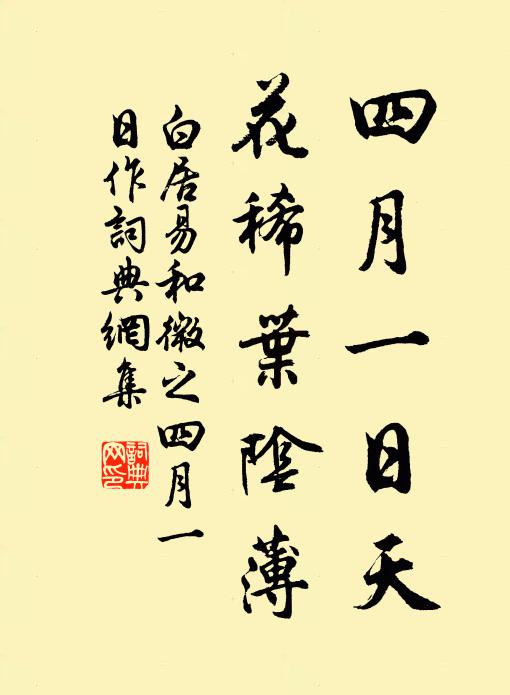 四月一日天
花稀葉陰薄
白居易和微之四月一
日作詞典網集
詞典
网印